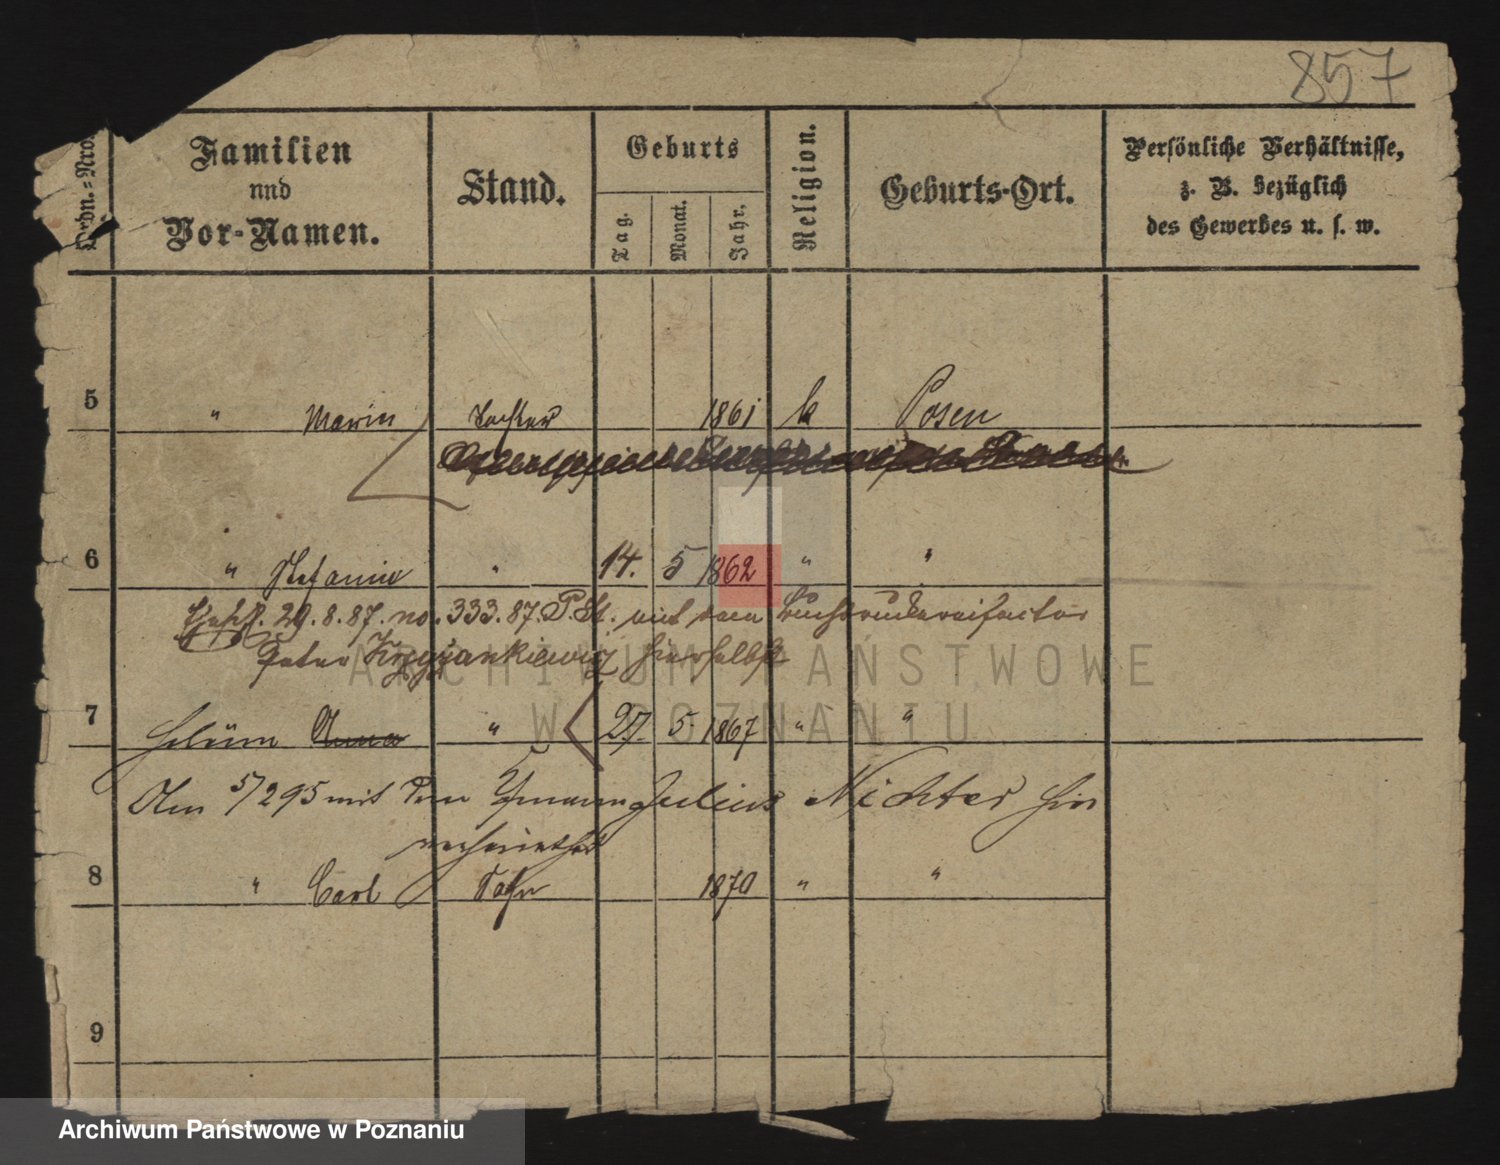 857
Ordn.=Nro.
Familien
und
Vor-Namen.
Stand.
Geburts
Tag.
Monat.
Jahr.
Religion.
Geburts-Ort.
Persönliche Verhältnisse,
z. B. bezüglich
des Gewerbes u. s. w.
5 " Marie Tochter 1861 k Posen
6 " Stefanie " 14. 5 1862 " "
Ehesch. 29.8.87. no. 333.87. P. St. mit dem Buchdruckereifactor
Peter Krzyżankiewicz hierselbst
7 Helene Anna " 27. 5. 1867 " "
Am 5/2 95 mit dem Julius Richter hier
verheirathet
8 " Carl Sohn 1870 " "
9
ARCHIWUM PAŃSTWOWE
W POZNANIU
Archiwum Państwowe w Poznaniu